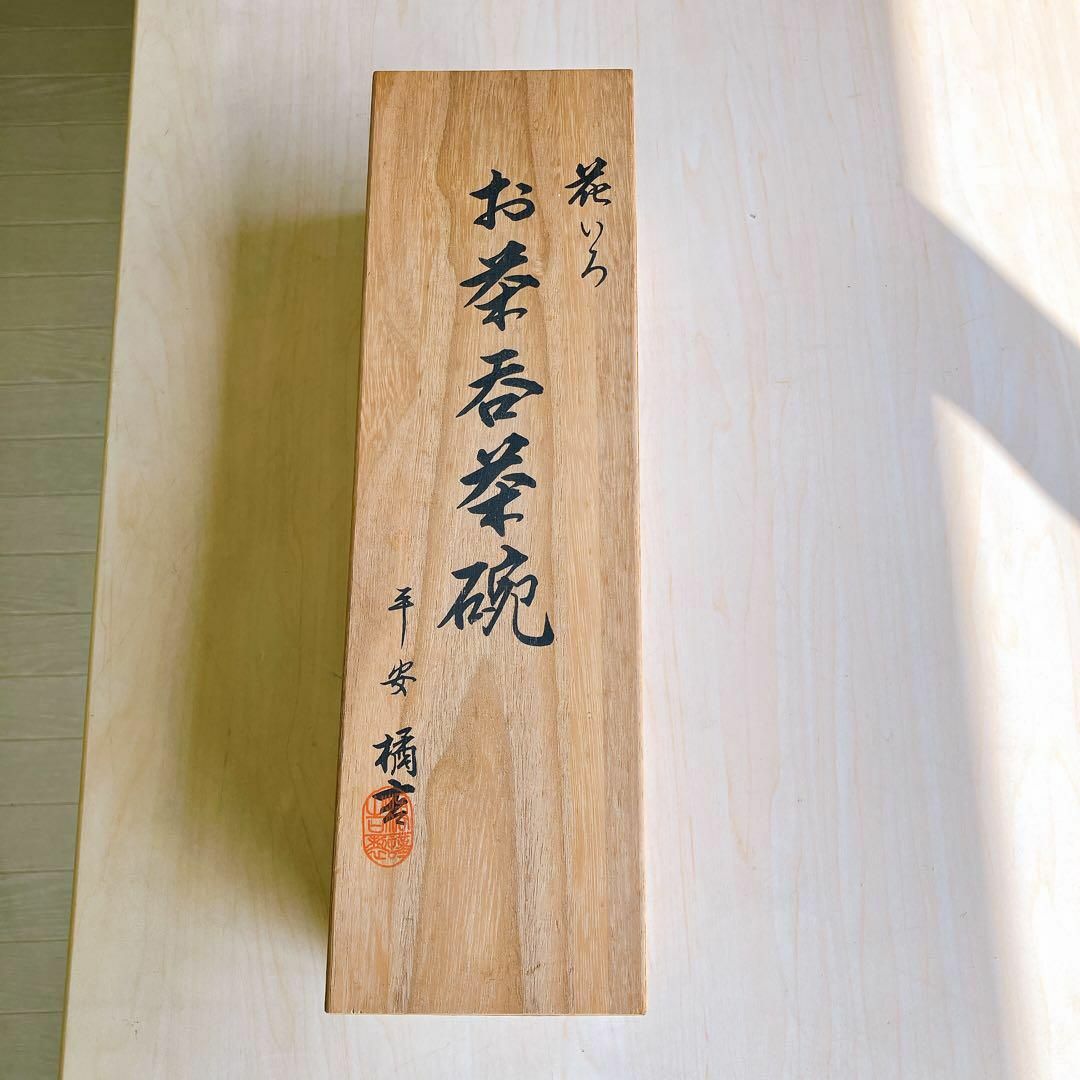 花いろ
お茶呑茶碗
平安 橘吉